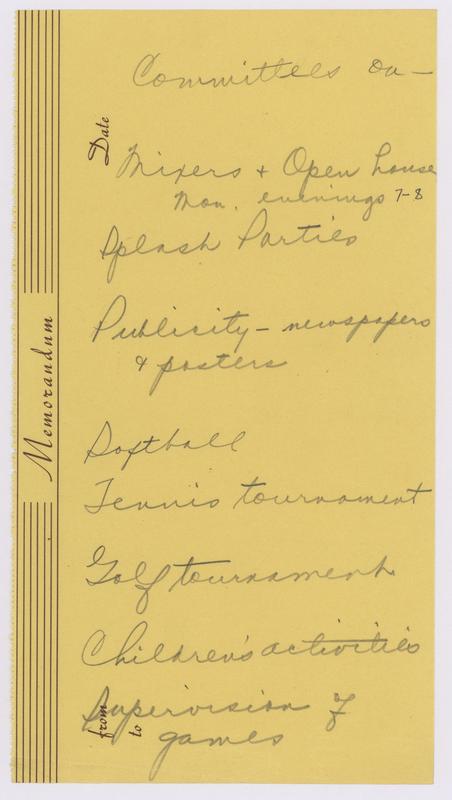 Committees on —
Date
Mixers + Open house
Mon. evenings 7-8
Splash Parties
Publicity - newspapers
& posters
Memorandum
Softball
Tennis tournament
Golf tournament
Children's activities
Supervision of
games
from
to